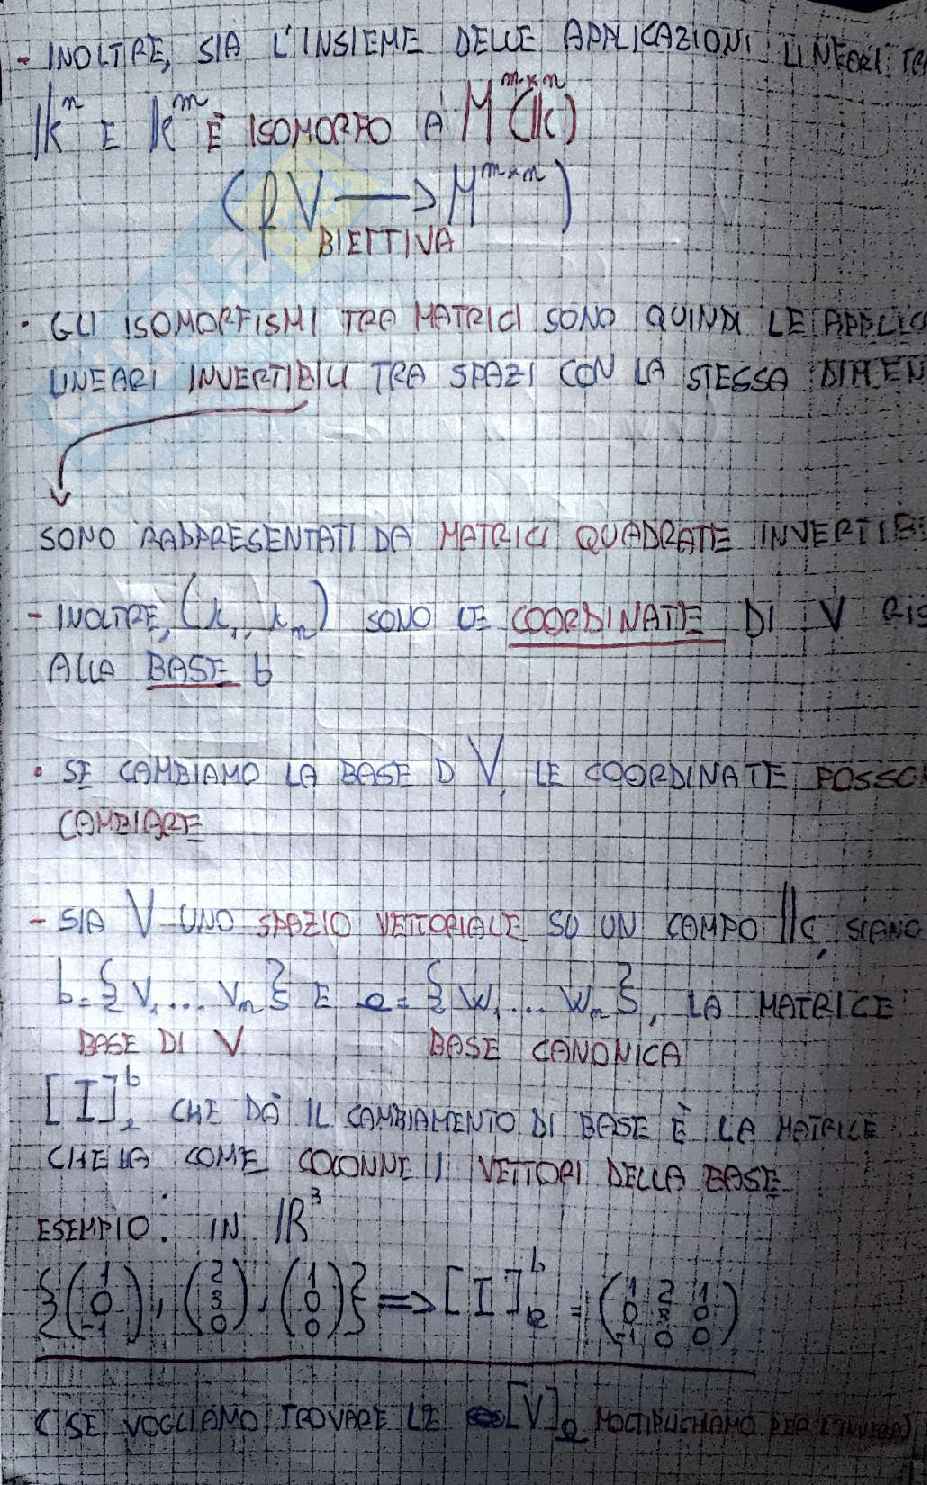 - INOLTRE, SIA L'INSIEME DELLE APPLICAZIONI LINEARI TRA
𝕜ⁿ E 𝕜ᵐ È ISOMORFO A Mᵐˣⁿ(𝕜)
(f V → Mᵐˣⁿ)
BIETTIVA
· GLI ISOMORFISMI TRA MATRICI SONO QUINDI LE APPLIC
LINEARI INVERTIBILI TRA SPAZI CON LA STESSA DIMEN
SONO RAPPRESENTATI DA MATRICI QUADRATE INVERTIB
- INOLTRE, (k₁, kₙ) SONO LE COORDINATE DI V RIS
ALLA BASE b
· SE CAMBIAMO LA BASE D V, LE COORDINATE POSSO
CAMBIARE
- SIA V UNO SPAZIO VETTORIALE SU UN CAMPO 𝕜, SIANO
b = {V₁ ... Vₙ} E e = {W₁ ... Wₙ}, LA MATRICE
BASE DI V BASE CANONICA
[I]ᵇₑ, CHE DÀ IL CAMBIAMENTO DI BASE È LA MATRICE
CHE HA COME COLONNE I VETTORI DELLA BASE
ESEMPIO: IN ℝ³
{(1 0 -1), (2 3 0), (1 0 0)} ⇒ [I]ᵇₑ = (1 2 1
0 3 0
-1 0 0)
(SE VOGLIAMO TROVARE LE [V]ₑ MOLTIPLICHIAMO PER